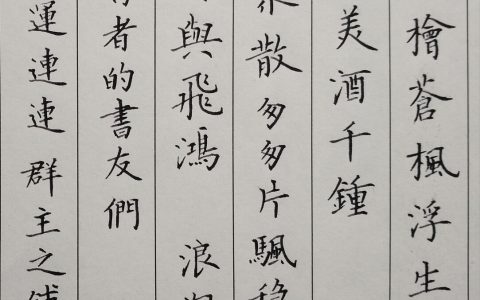 檜蒼楓浮生
美酒千鍾
散匆匆片颿
與飛鴻 浪
者的書友們
運連連 群主之